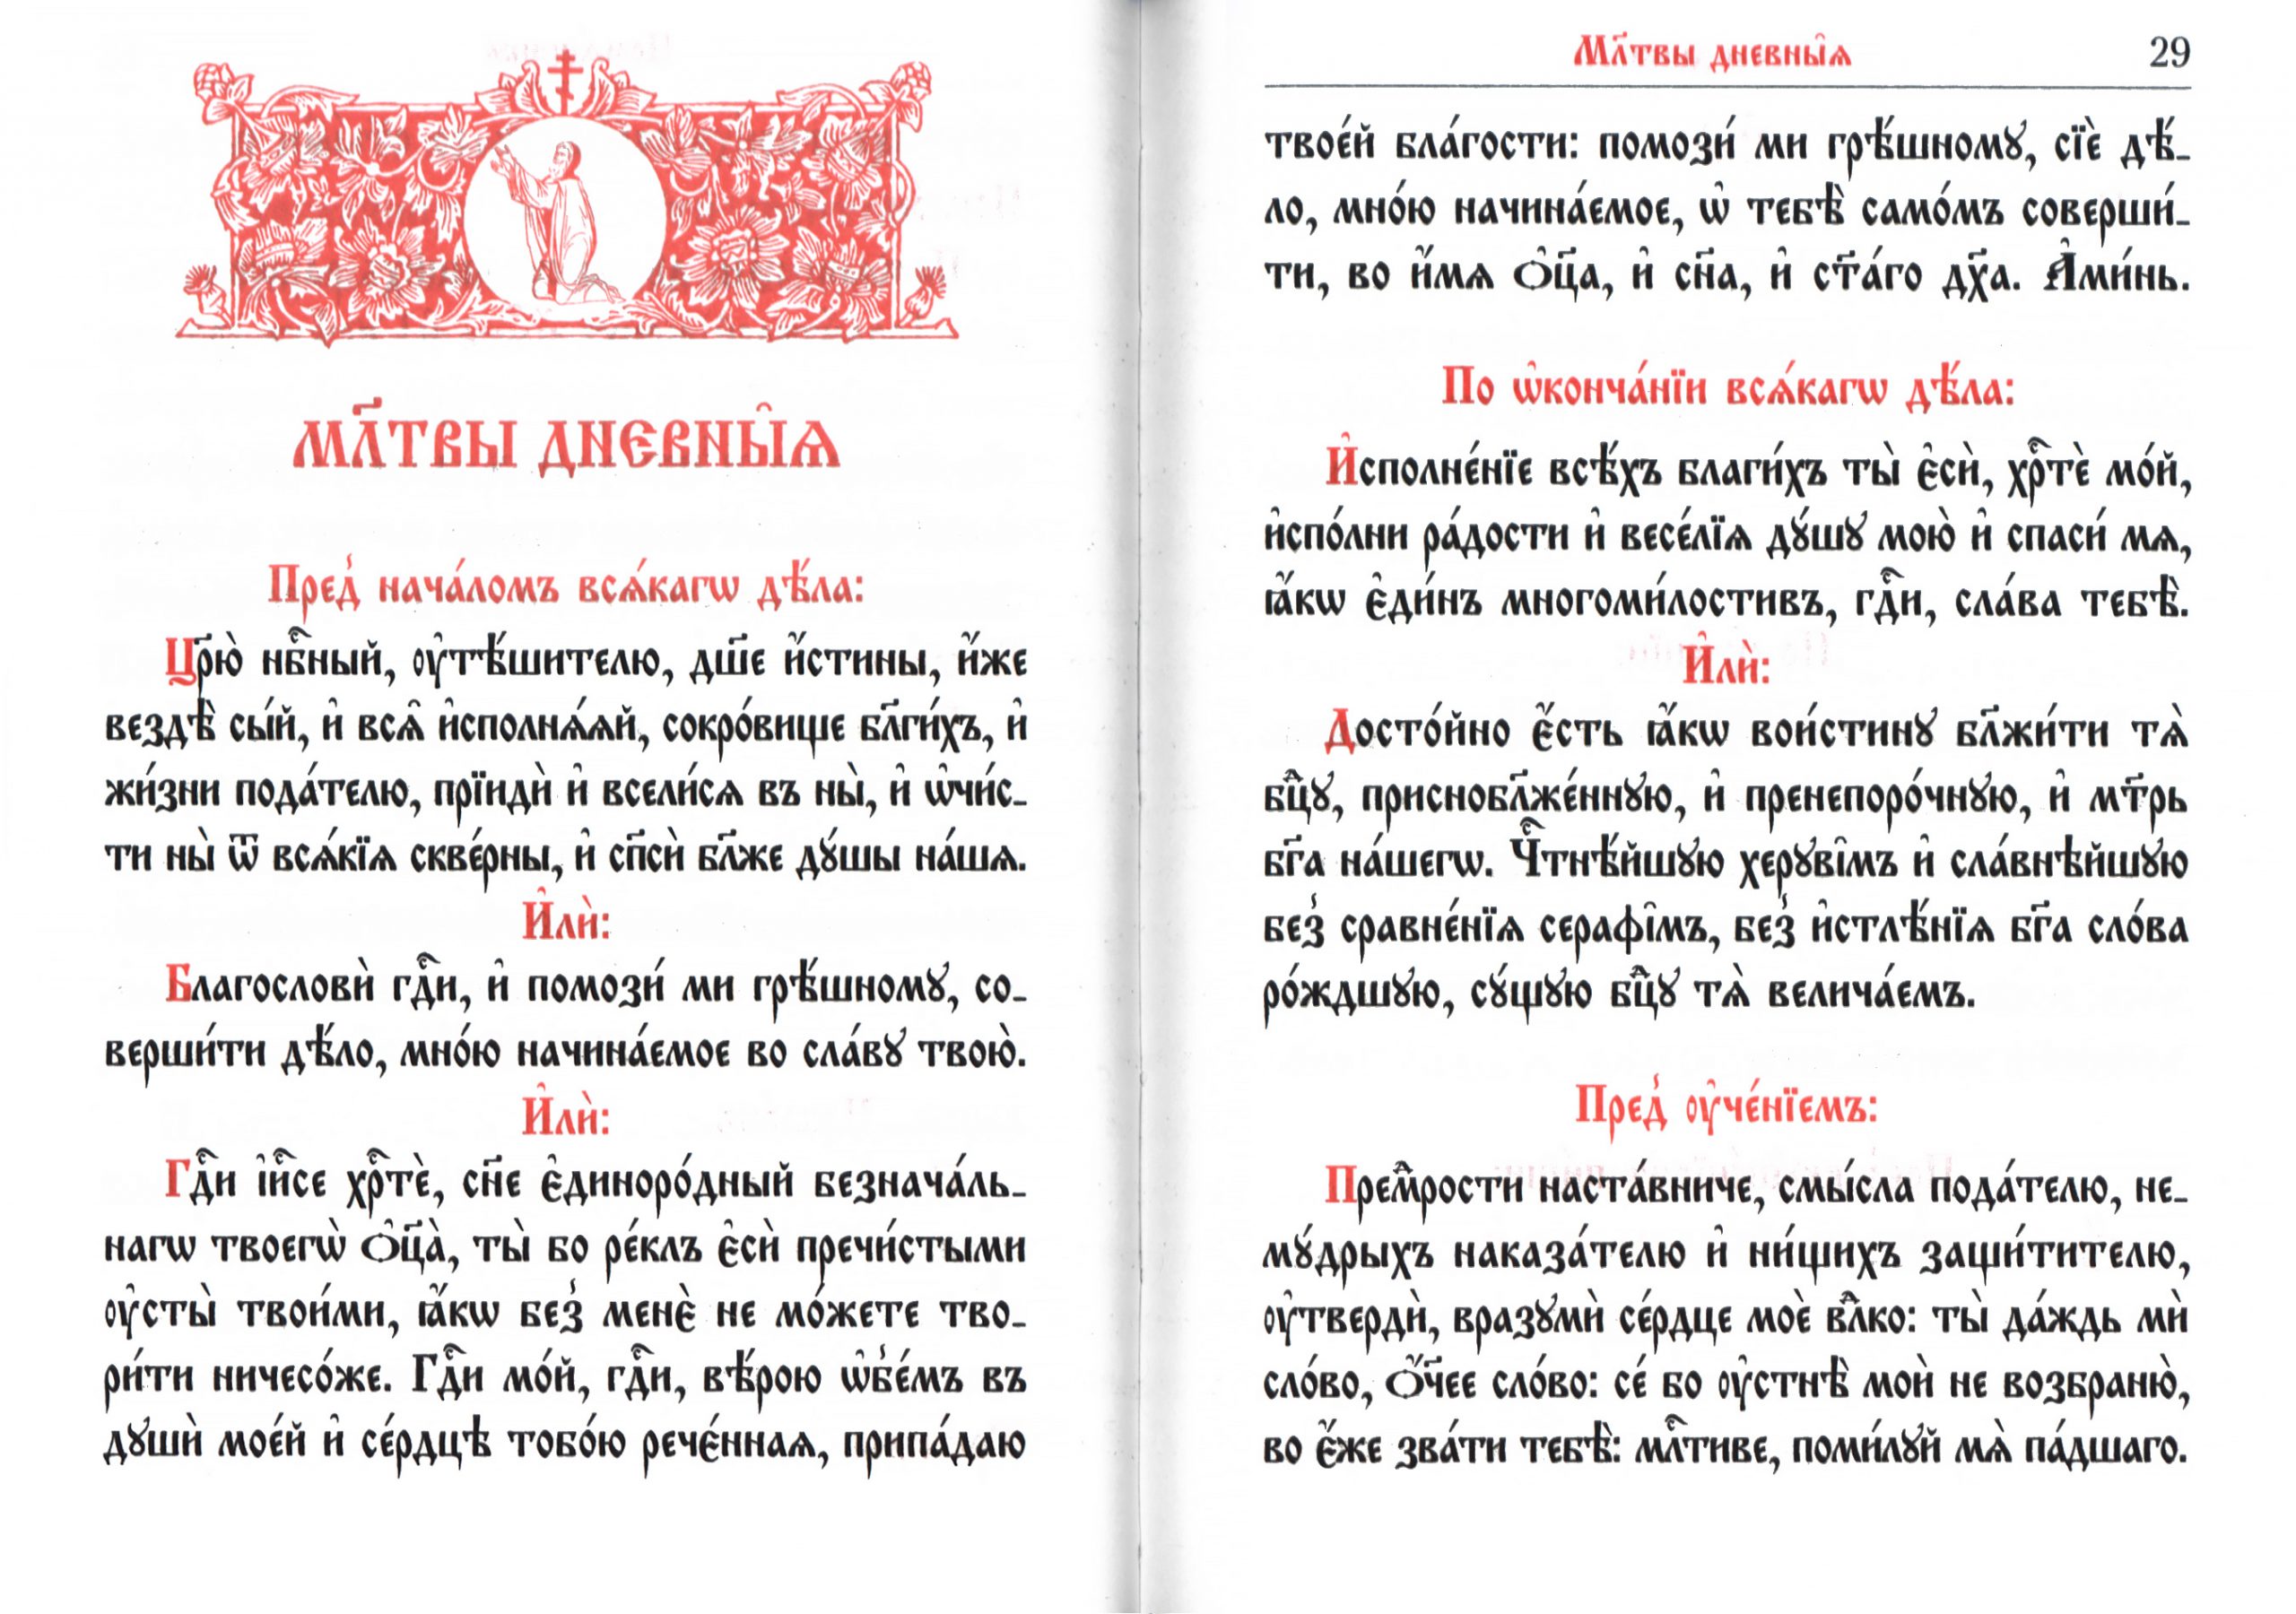 МЛ҃ТВЫ ДНЕВНЫ̑Ѧ
Пред̾ нача́ломъ всѧ́кагѡ дѣ́ла:
Цр҃ю̀ нбⷭ҇ный, ᲂу҆тѣ́шителю, дш҃е и҆́стины, и҆́же
вездѣ̀ сы́й, и҆ всѧ̑ и҆сполнѧ́ѧй, сокро́вище бл҃ги́хъ, и҆
жи́зни пода́телю, прїидѝ и҆ всели́сѧ въ ны̀, и҆ ѡ҆чи́с-
ти ны̀ ѿ всѧ́кїѧ скве́рны, и҆ сп҃сѝ бл҃же дꙋ́шы на́шѧ.
И҆лѝ:
Благословѝ гдⷭ҇и, и҆ помози́ ми грѣ́шномꙋ, со-
верши́ти дѣ́ло, мно́ю начина́емое во сла́вꙋ твою̀.
И҆лѝ:
Гдⷭ҇и і҆и҃се хрⷭ҇тѐ, сн҃е є҆диноро́дный безнача́ль-
нагѡ твоегѡ̀ ѻ҆ц҃а̀, ты̀ бо ре́клъ є҆сѝ пречи́стыми
ᲂу҆сты̀ твои́ми, ꙗ҆́кѡ без̾ менє̀ не мо́жете тво-
ри́ти ничесо́же. Гдⷭ҇и мо́й, гдⷭ҇и, вѣ́рою ѡ҆б̾е́мъ въ
дꙋшѝ мое́й и҆ се́рдцѣ тобо́ю рече́ннаѧ, припа́даю
Мл҃твы дневны̑ѧ 29
твоеѐй бла́гости: помози́ ми грѣ́шномꙋ, сїѐ дѣ́-
ло, мно́ю начина́емое, ѡ҆ тебѣ̀ само́мъ соверши́-
ти, во и҆́мѧ ѻ҆ц҃а, и҆ сн҃а, и҆ ст҃а́го дх҃а. А҆ми́нь.
По ѡ҆конча́нїи всѧ́кагѡ дѣ́ла:
И҆сполне́нїе всѣ́хъ благи́хъ ты̀ є҆сѝ, хрⷭ҇тѐ мо́й,
и҆спо́лни ра́дости и҆ весе́лїѧ дꙋ́шꙋ мою̀ и҆ спаси́ мѧ,
ꙗ҆́кѡ є҆ди́нъ многоми́лостивъ, гдⷭ҇и, сла́ва тебѣ̀.
И҆лѝ:
Досто́йно є҆́сть ꙗ҆́кѡ вои́стинꙋ бл҃жи́ти тѧ̀
бцⷣꙋ, приснобл҃же́ннꙋю, и҆ пренепоро́чнꙋю, и҆ мт҃рь
бг҃а на́шегѡ. Чⷭ҇тнѣ́йшꙋю херꙋві̑мъ и҆ сла́внѣйшꙋю
без̾ сравне́нїѧ серафі̑мъ, без̾ и҆стлѣ́нїѧ бг҃а сло́ва
ро́ждшꙋю, сꙋ́щꙋю бцⷣꙋ тѧ̀ велича́емъ.
Пред̾ ᲂу҆че́нїемъ:
Премⷣрости наста́вниче, смы́сла пода́телю, не-
мꙋ́дрыхъ наказа́телю и҆ ни́щихъ защи́тителю,
ᲂу҆твердѝ, вразꙋмѝ се́рдце моѐ влⷣко: ты̀ да́ждь мѝ
сло́во, ѻ҆́ч҃ее сло́во: се́ бо ᲂу҆стнѣ̀ моѝ не возбраню̀,
во є҆́же зва́ти тебѣ̀: млⷭ҇тиве, поми́лꙋй мѧ̀ па́дшаго.